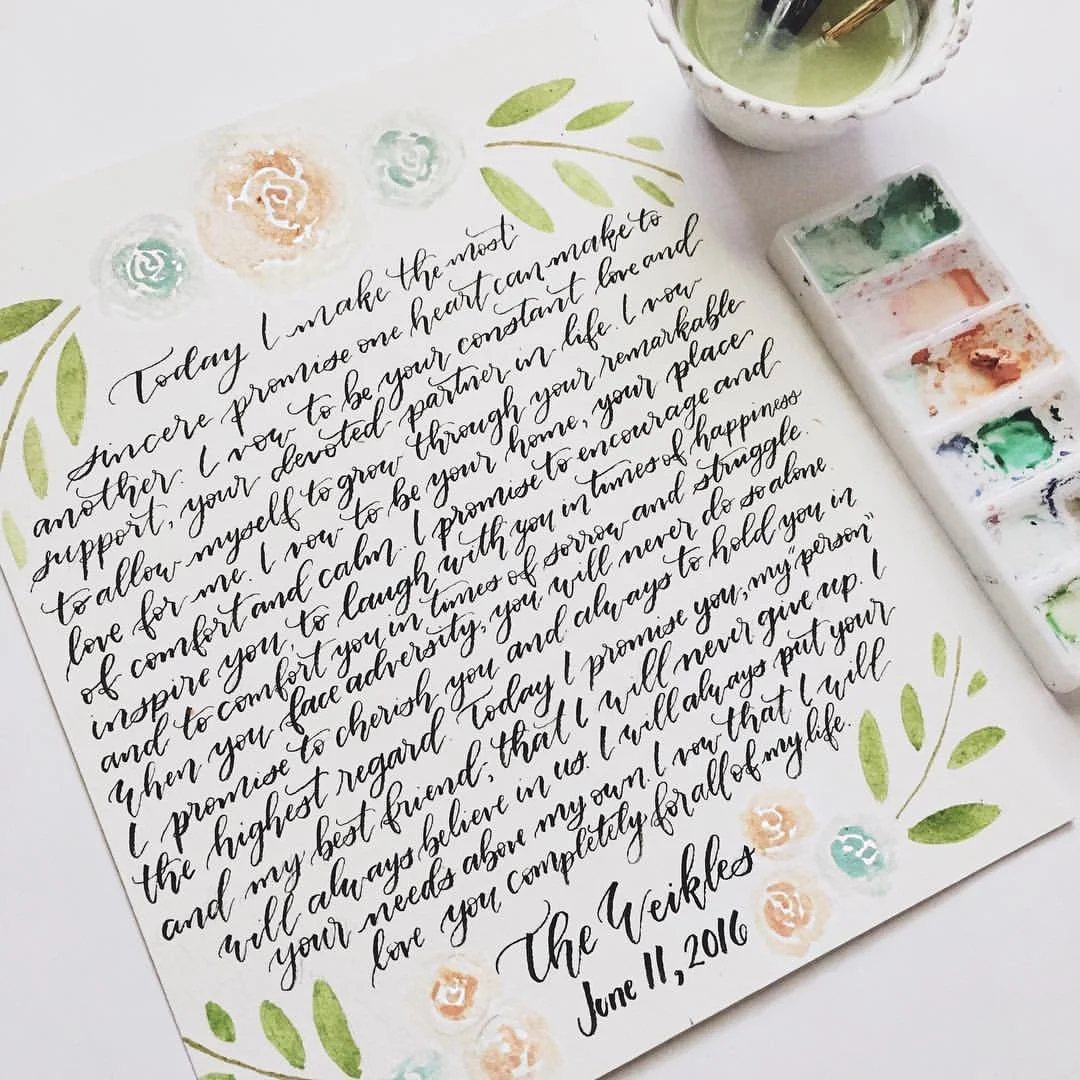 Today I make the most
sincere promise one heart can make to
another. I vow to be your constant love and
support, your devoted partner in life. I vow
to allow myself to grow through your remarkable
love for me. I vow to be your home, your place
of comfort and calm. I promise to encourage and
inspire you, to laugh with you in times of happiness
and to comfort you in times of sorrow and struggle.
When you face adversity, you will never do so alone.
I promise to cherish you and always to hold you in
the highest regard. Today I promise you, my "person"
and my best friend, that I will never give up. I
will always believe in us. I will always put your
your needs above my own. I vow that I will
love you completely for all of my life.
The Weikles
June 11, 2016